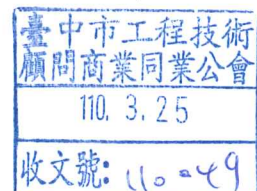 臺中市工程技術
顧問商業同業公會
110. 3. 25
收文號: 110049